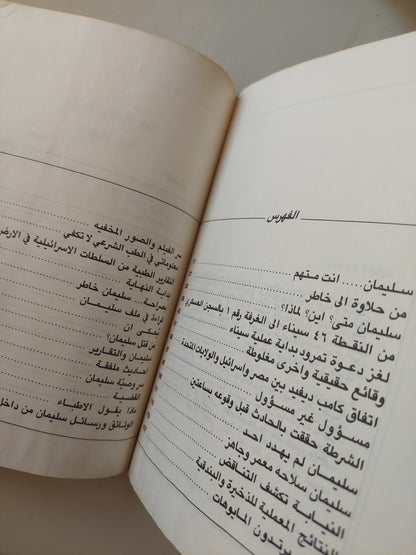 الفهرس
سليمان.... انت متهم
من حلاوة الى خاطر
سليمان متى؟ اين؟ لماذا؟
من النقطة ٤٦ سيناء الى الغرفة رقم ١ بالسجن العسكرى
لغز دعوة تمرود بداية عملية سيناء
وقائع حقيقية واخرى مغلوطة
اتفاق كامب ديفيد بين مصر واسرائيل والولايات المتحدة
مسؤول غير مسؤول
الشرطة حققت بالحادث قبل وقوعه بساعتين
سليمان لم يهدد احد
سليمان سلاحه معمر وجاهز
النيابة تكشف التناقض
النتائج المعملية للذخيرة والبندقية
يرتدون المايوهات
سر الفيلم والصور المخفيه
معلوماتي في الطب الشرعي لا تكفي
التقارير الطبية من السلطات الاسرائيلية في الارض
بداية النهاية
بصراحة.. سليمان خاطر
قراءة في ملف سليمان
تحكى ان
من قتل سليمان؟
سليمان والتقارير
احاديث ملفقة
سر وصية سليمان
القضية
ماذا يقول الاطباء
الوثائق ورسائل سليمان من داخل